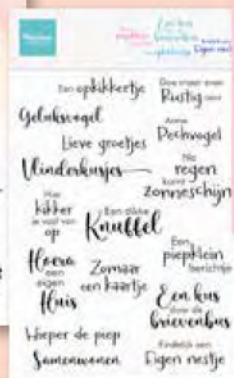 Een opkikkertje
Doe maar even
Rustig aan
Geluksvogel
Arme
Pechvogel
Lieve groetjes
Vlinderkusjes
Na
regen
komt
zonneschijn
Hier
kikker
je vast van
op
Een dikke
Knuffel
Een
piepklein
berichtje
Hoera
een
eigen
Huis
Zomaar
een kaartje
Een kus
door de
brievenbus
Hieper de piep
Samenwonen
Eindelijk een
Eigen nestje